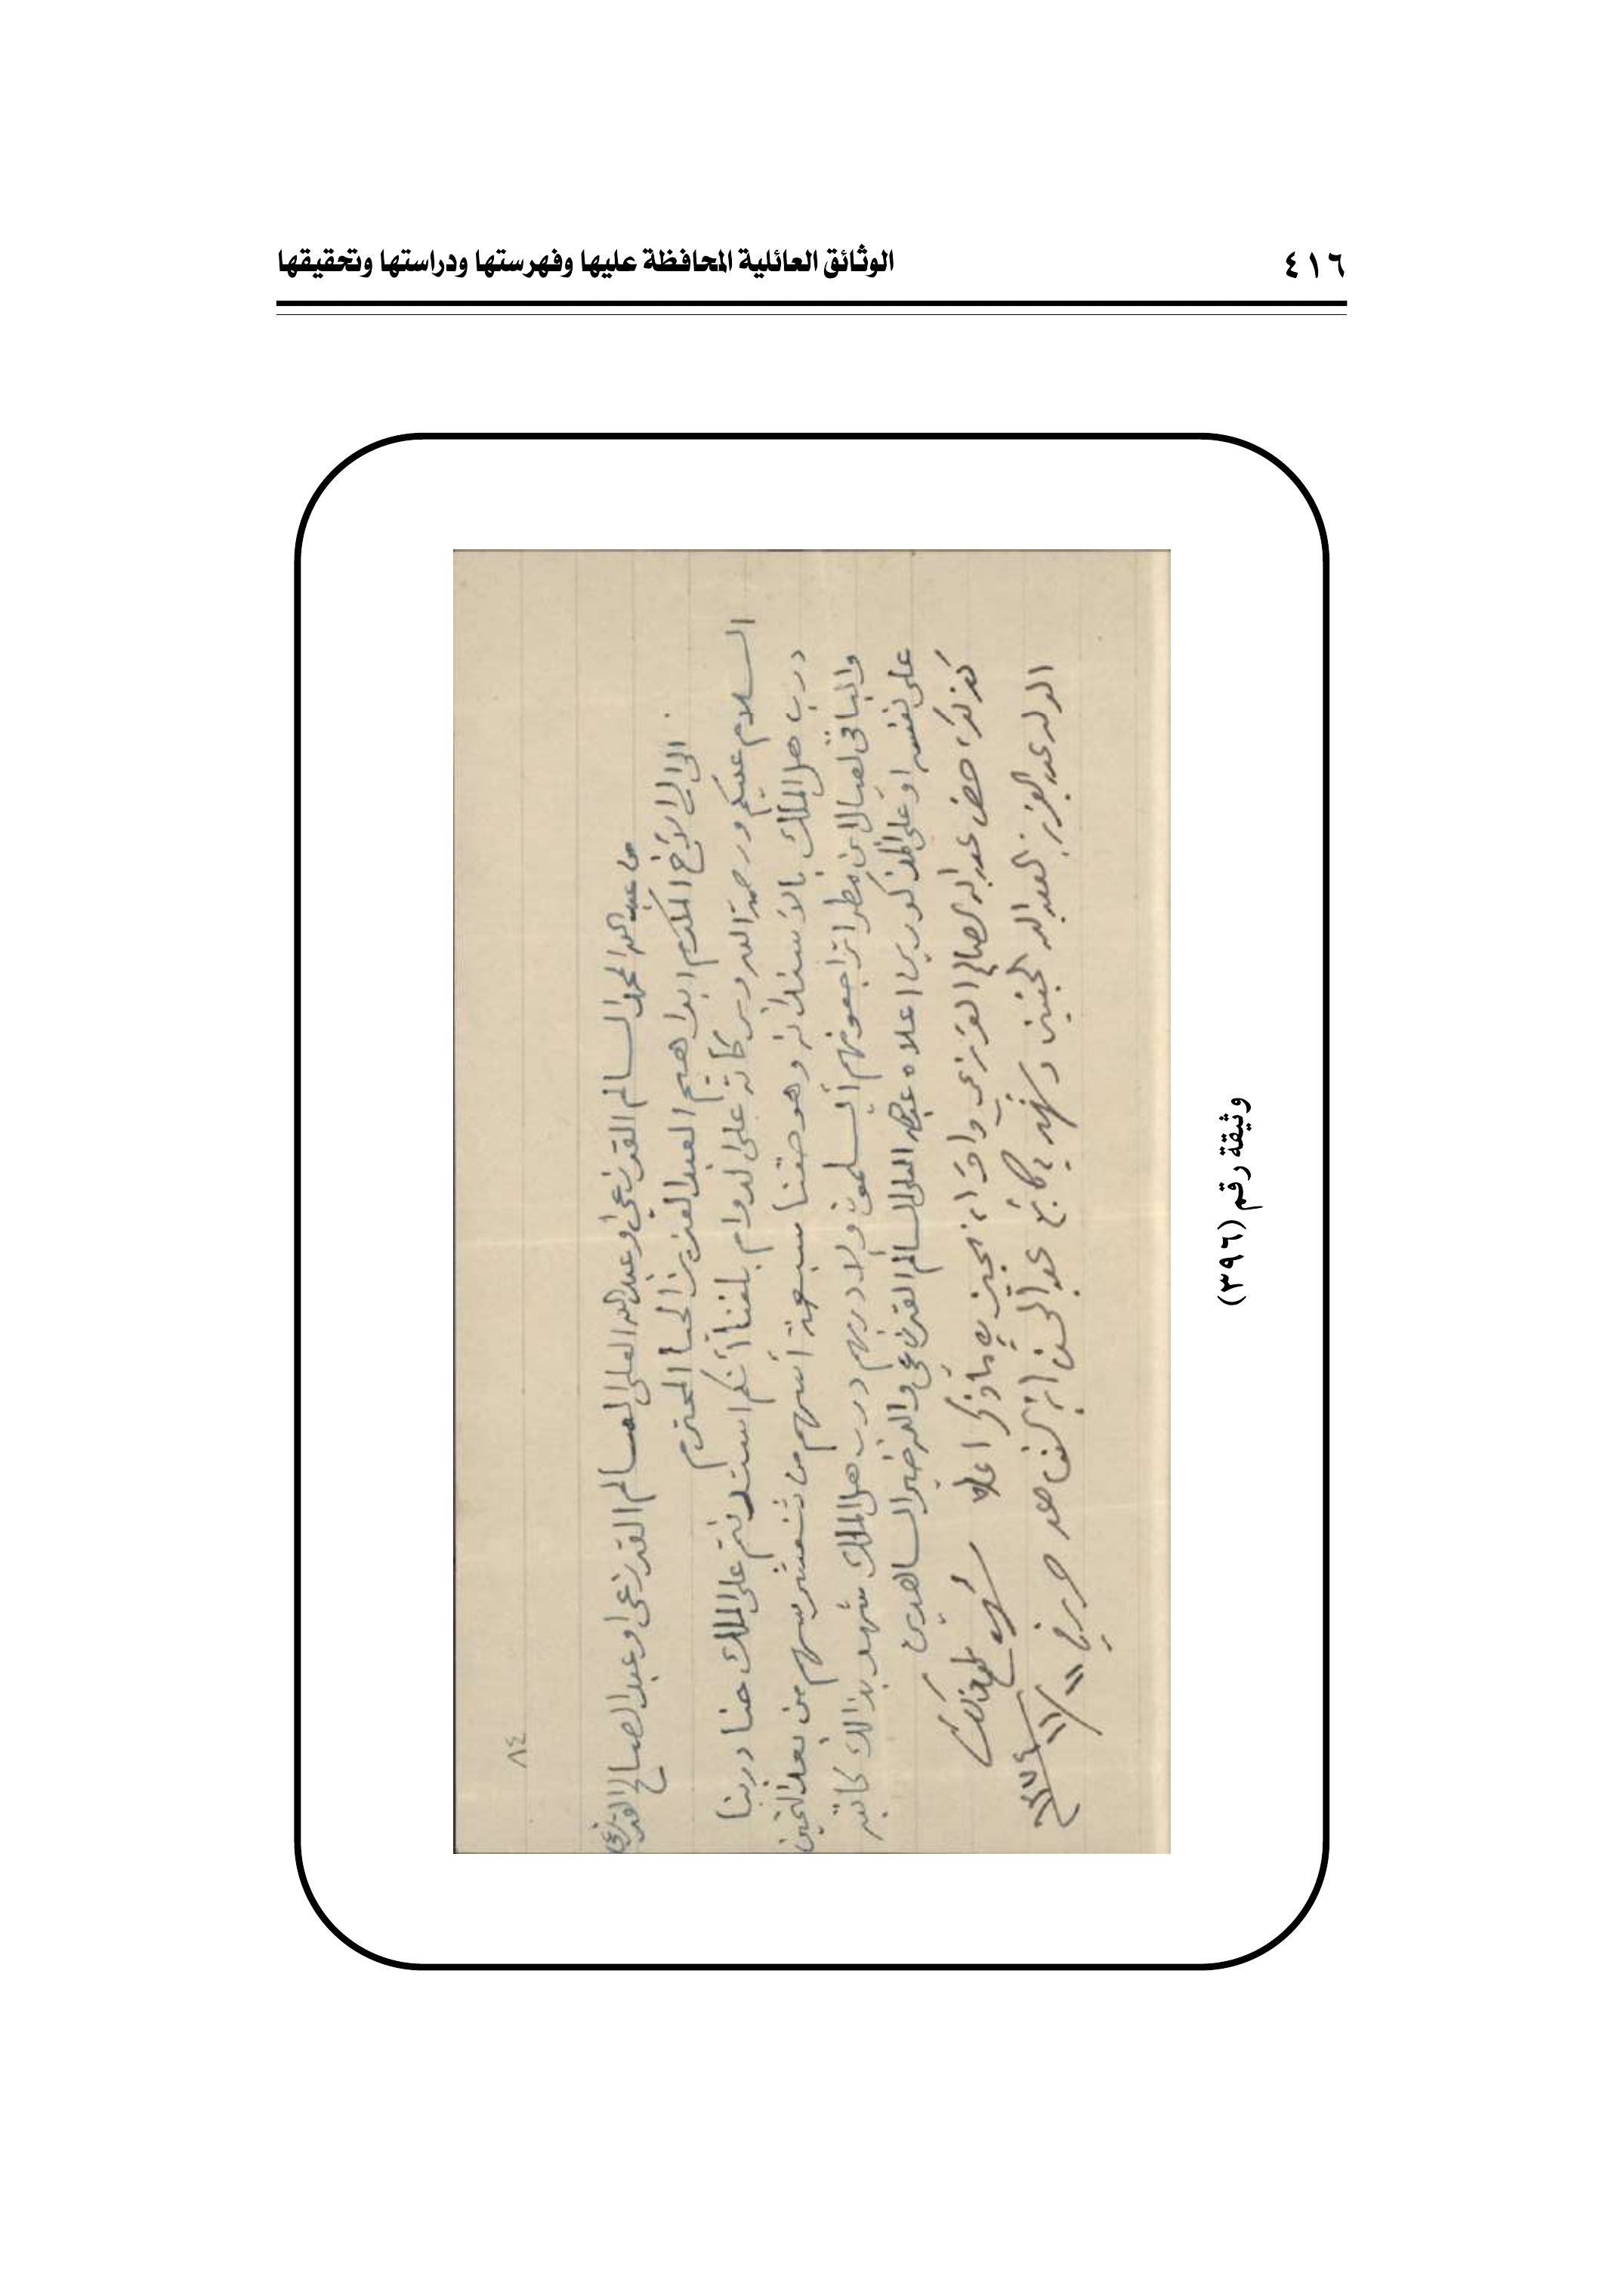 ٤١٦
الوثائق العائلية المحافظة عليها وفهرستها ودراستها وتحقيقها
٨٤
من عبدالله المحمد السالم القرزعي وعبدالله العلي السالم القرزعي وعبدالله الصالح القرزعي
الى الأخ المكرم ابراهيم العبدالعزيز المحترم
السلام عليكم ورحمة الله وبركاته على الدوام بلغنا أنكم على الملك حنا دربنا
درب هل الملك وهو حقنا سبعة أسهم من سهم من بعد الثمين
والباقي لعيال ابن مطر تراجعونهم ولا دربهم درب هل الملك شهد بذالك كاتبه
على نفسه وعلى المذكورين اعلاه عبدالله العلي السالم القرزعي والله خير الشاهدين
كذلك حضر عبدالله الصالح القرزعي ما ذكر اعلاه شهد على ذلك
الولد عبدالعزيز العبدالله وشهد به كاتبه
وثيقة رقم (٣٩٦)